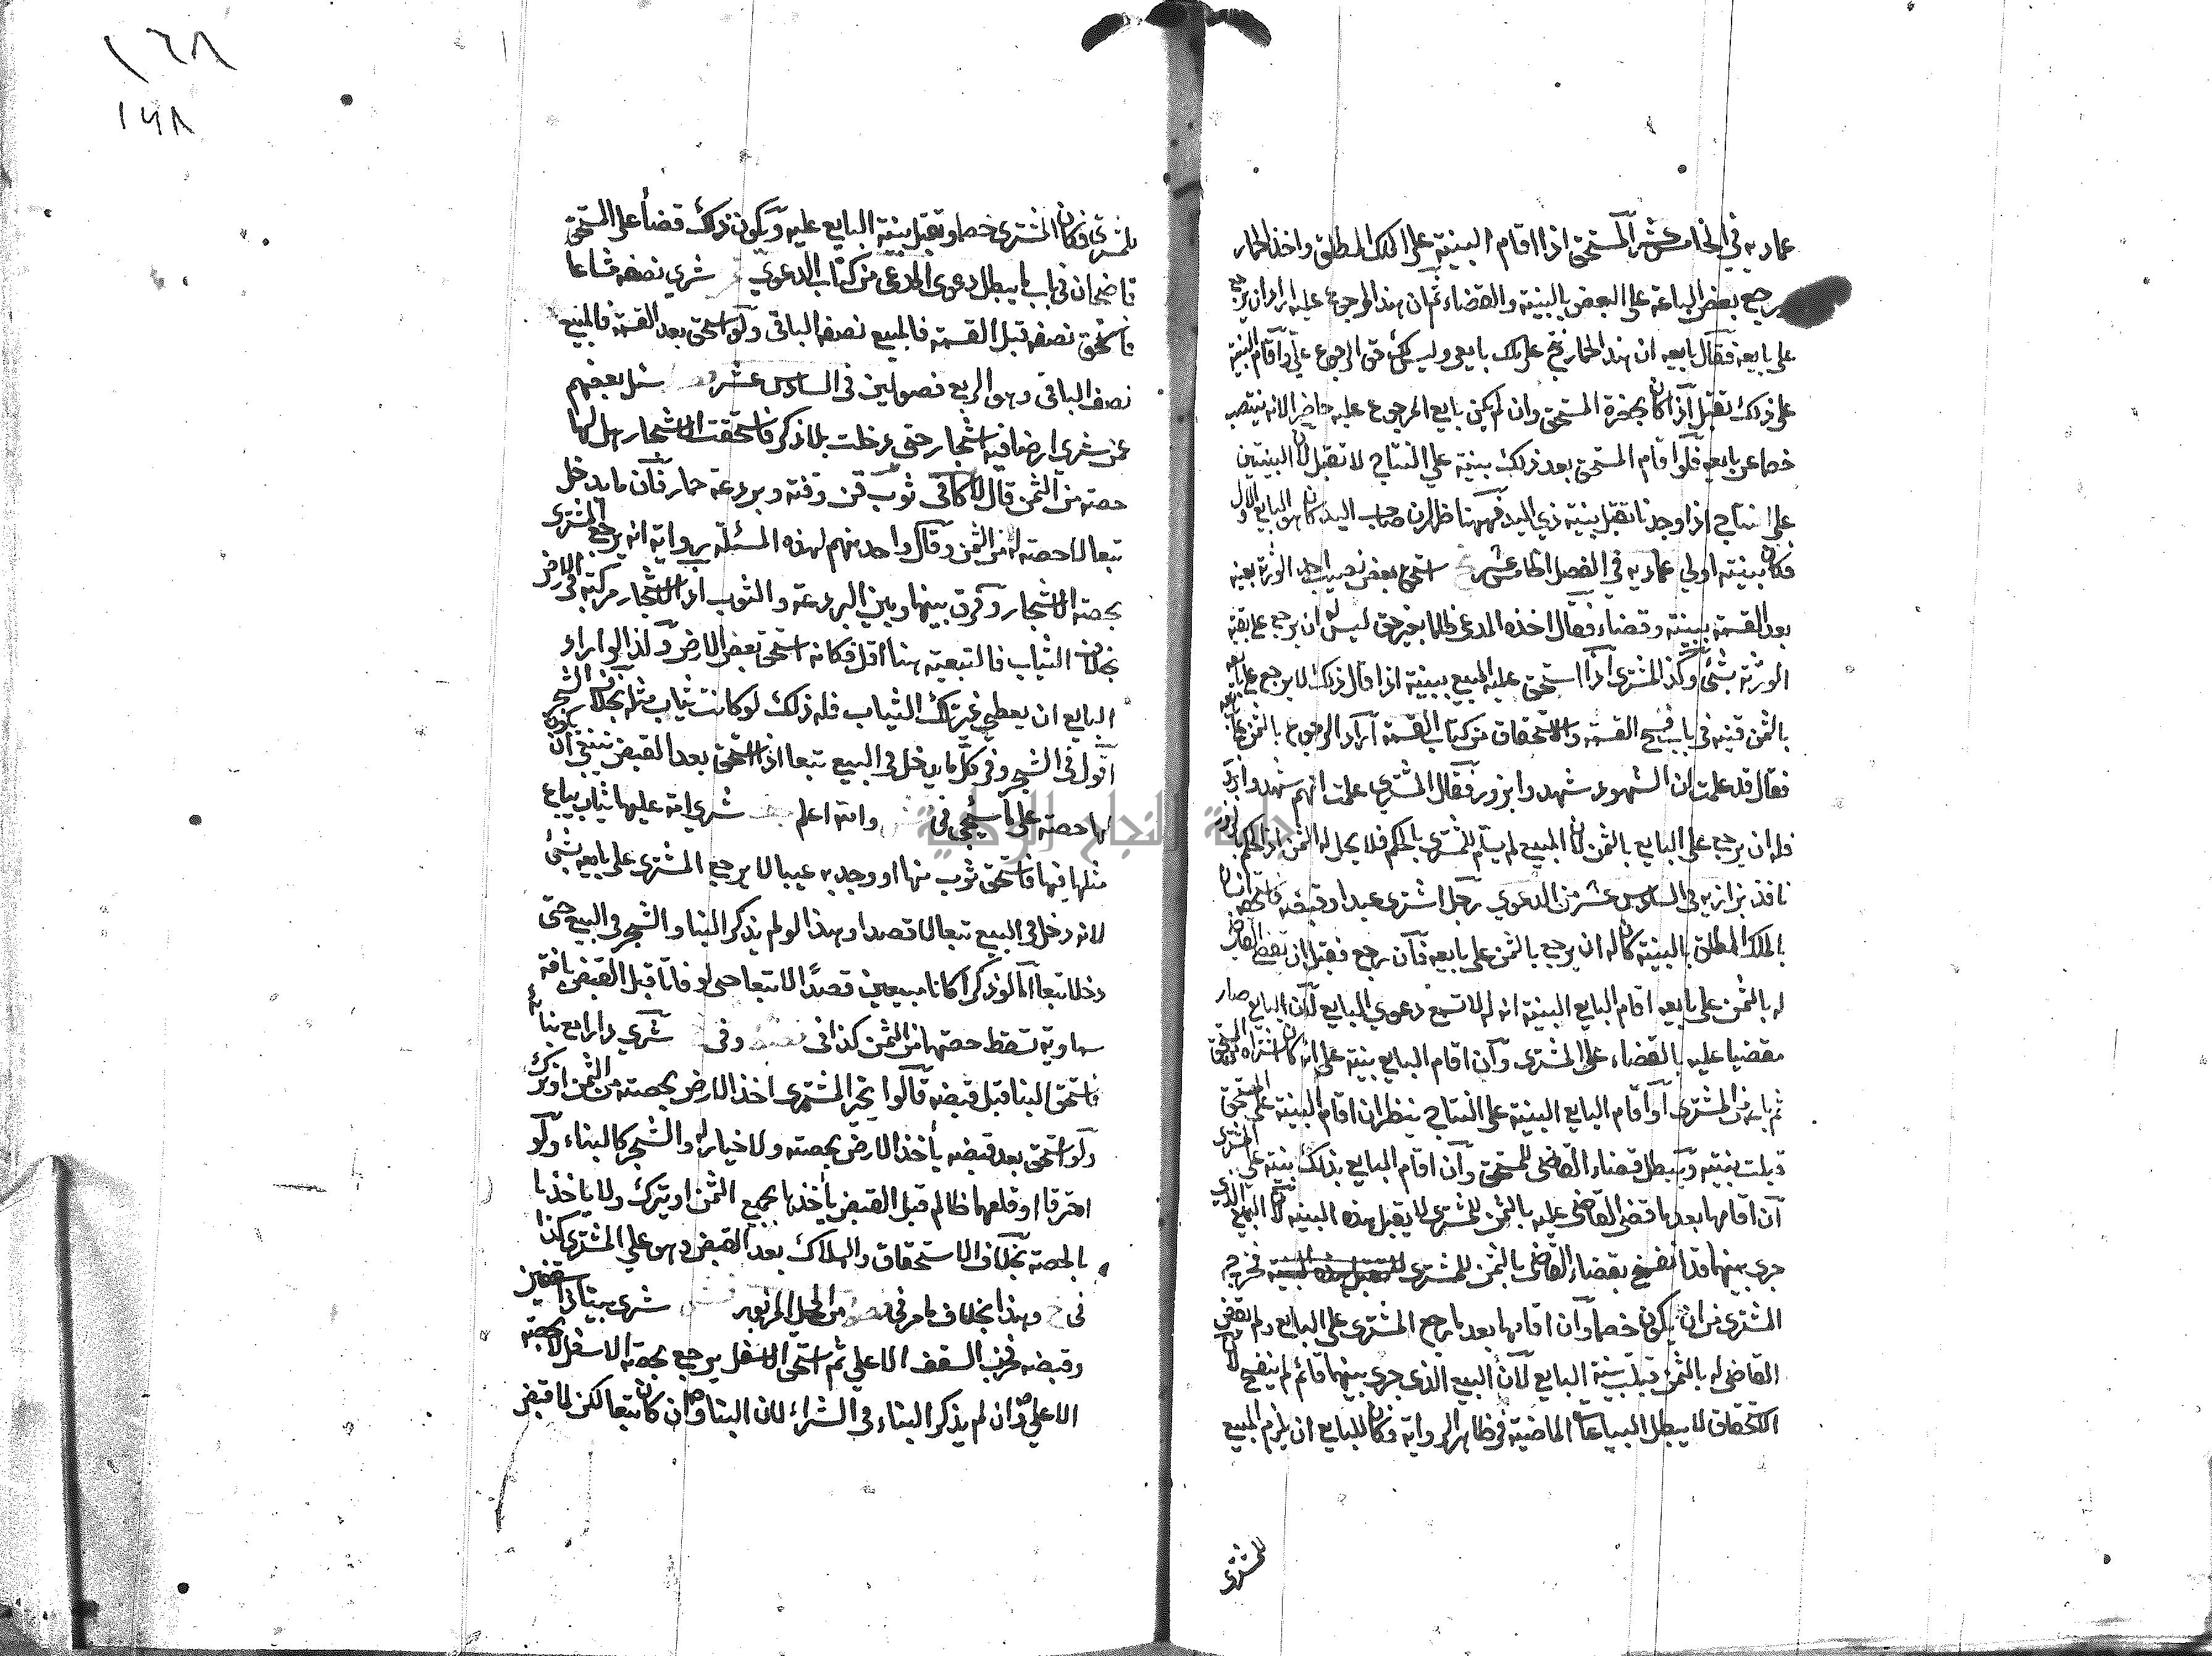 عمادية في الخامس عشر المستحق اذا اقام البينة على الملك المطلق واخذ الحمار
ورجع بعض الباعة على البعض بالبينة والقضاء ثم ان هذا المرجوع عليه اراد ان يرجع
على بايعه فقال بايعه ان هذا الحمار نتج على ملك بايعي وليس لك حق الرجوع علي واقام البينة
على ذلك تقبل اذا كان بحضرة المستحق وان لم يكن بايع المرجوع عليه حاضرا لانه ينتصب
خصما عن بايعه فلو اقام المستحق بعد ذلك بينة على النتاج لا تقبل لان البينتين
على النتاج اذا وجدتا تقبل بينة ذي اليد فههنا ظهر ان صاحب اليد كان هو البايع الاول
فكان بينته اولي عمادية في الفصل الخامس عشر استحق بعض نصيب احد الورثة بعينه
بعد القسمة ببينة وقضاء فقال اخذه المدعي ظلما بغير حق ليس له ان يرجع على بقية
الورثة بشئ وكذا المشتري اذا استحق عليه المبيع ببينة اذا قال ذلك لا يرجع على بايعه
بالثمن قنية في باب فسخ القسمة والاستحقاق من كتاب القسمة اراد الرجوع بالثمن على بايعه
فقال قد علمت ان الشهود شهدوا بزور فقال المشتري علمت انهم شهدوا بزور
فله ان يرجع على البايع بالثمن لان المبيع لم يسلم للمشتري بالحكم فلا يحل له الثمن اذ الحكم بالزور
نافذ بزازية في السادس عشر من الدعوي رجل اشترى عبدا وقبضه فاستحقه انسان
بالملك المطلق بالبينة كان له ان يرجع بالثمن على بايعه فان رجع فقبل ان يقضي القاضي
له بالثمن على بايعه اقام البايع البينة انه له لا تسمع دعوي البايع لان البايع صار
مقضيا عليه بالقضاء على المشتري وان اقام البايع بينة على انه كان اشتراه من المستحق
ثم باعه من المشتري او اقام البايع البينة على النتاج ينظر ان اقام البينة على المستحق
قبلت بينته ويبطل قضاء القاضي للمستحق وان اقام البايع بذلك بينة على المشتري
ان اقامها بعد ما قضى القاضي عليه بالثمن للمشتري لا يقبل هذه البينة لان البيع الذي
جري بينهما قد انفسخ بقضاء القاضي بالثمن للمشتري فخرج
المشتري من ان يكون خصما وان اقامها بعد ما رجع المشتري على البايع ولم يقض
القاضي له بالثمن قبلت بينة البايع لان البيع الذي جرى بينهما قائم لم ينفسخ لان
الاستحقاق لا يبطل البياعات الماضية في ظاهر الرواية فكان للبايع ان يلزم المبيع
للمشتري
١٦٨
١٦٨
للمشتري فكان المشتري خصما وتقبل بينة البايع عليه ويكون ذلك قضاء على المستحق
قاضيخان في باب ما يبطل دعوى المدعي من كتاب الدعوي شري نصفه مشاعا
فاستحق نصفه قبل القسمة فالمبيع نصفه الباقي ولو استحق بعد القسمة فالمبيع
نصف الباقي وهو الربع فصولين في السادس عشر سئل بعضهم
عمن شري ارضا فيه اشجار حتى دخلت بلا ذكر فاستحقت الاشجار هل لها
حصة من الثمن قال لا كما في ثوب قن وقنة وبردعة حمار فان ما يدخل
تبعا لا حصة له من الثمن وقال واحد منهم لهذه المسئلة رواية انه يرجع المشتري
بحصة الاشجار وفرق بينها وبين البردعة والثوب اذ الاشجار مركبة في الارض
بخلاف الثياب فالتبعية هنا اقل فكانه استحق بعض الارض ولذا لو اراد
البايع ان يعطي غير تلك الثياب فله ذلك لو كانت ثياب مثله بخلاف الشجر
اقول في الشجر وفي كل ما يدخل في البيع تبعا اذا استحق بعد القبض ينبغي ان يكون
لها حصة على ما سيجئ في والله اعلم شري امة عليها ثياب يباع
مثلها فيها فاستحق ثوب منها او وجد به عيبا لا يرجع المشتري على بايعه بشئ
لانه دخل في البيع تبعا لا قصدا وهذا لو لم يذكر البناء والشجر في البيع حتى
دخلا تبعا اما لو ذكرا كانا مبيعين قصدا لا تبعا حتى لو فاتا قبل القبض بافة
سماوية تسقط حصتها من الثمن كذا في وفي شري دارا مع بنائه
فاستحق البنا قبل قبضه قالوا يخير المشتري اخذ الارض بحصته من الثمن او ترك
ولو استحق بعد قبضه يأخذ الارض بحصته ولا خيار له والشجر كالبناء ولو
احترقا او قلعهما ظالم قبل القبض يأخذها بجميع الثمن او يترك ولا يأخذها
بالحصة بخلاف الاستحقاق والهلاك بعد القبض وهو على المشتري كذا
في وهذا بخلاف ما مر في من المحل المزبور شري بيتا في سقفين
وقبضه فخرب السقف الاعلي ثم استحق الاسفل يرجع بحصة الاسفل لا بحصة
الاعلي وان لم يذكر البناء في الشراء لان البنا وان كان تبعا لكن لما قبض
جامعة النجاح الوطنية